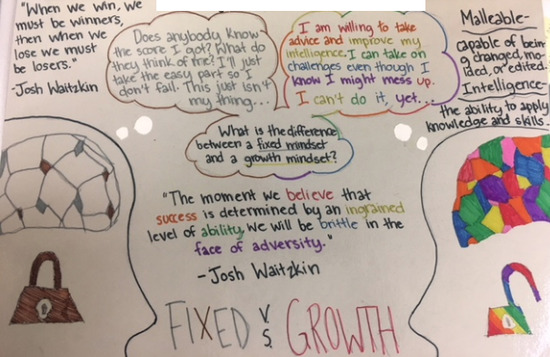 "When we win, we
must be winners,
then when we
lose we must
be losers."
-Josh Waitzkin
Does anybody know
the score I got? What do
they think of me? I'll just
take the easy part so I
don't fail. This just isn't
my thing...
I am willing to take
advice and improve my
intelligence. I can take on
challenges even though I
know I might mess up.
I can't do it, yet...
Malleable-
capable of bein-
g changed, mo-
lded, or edited.
Intelligence-
the ability to apply
knowledge and skills.
What is the difference
between a fixed mindset
and a growth mindset?
"The moment we believe that
success is determined by an ingrained
level of ability, we will be brittle in the
face of adversity."
-Josh Waitzkin
FIXED VS GROWTH